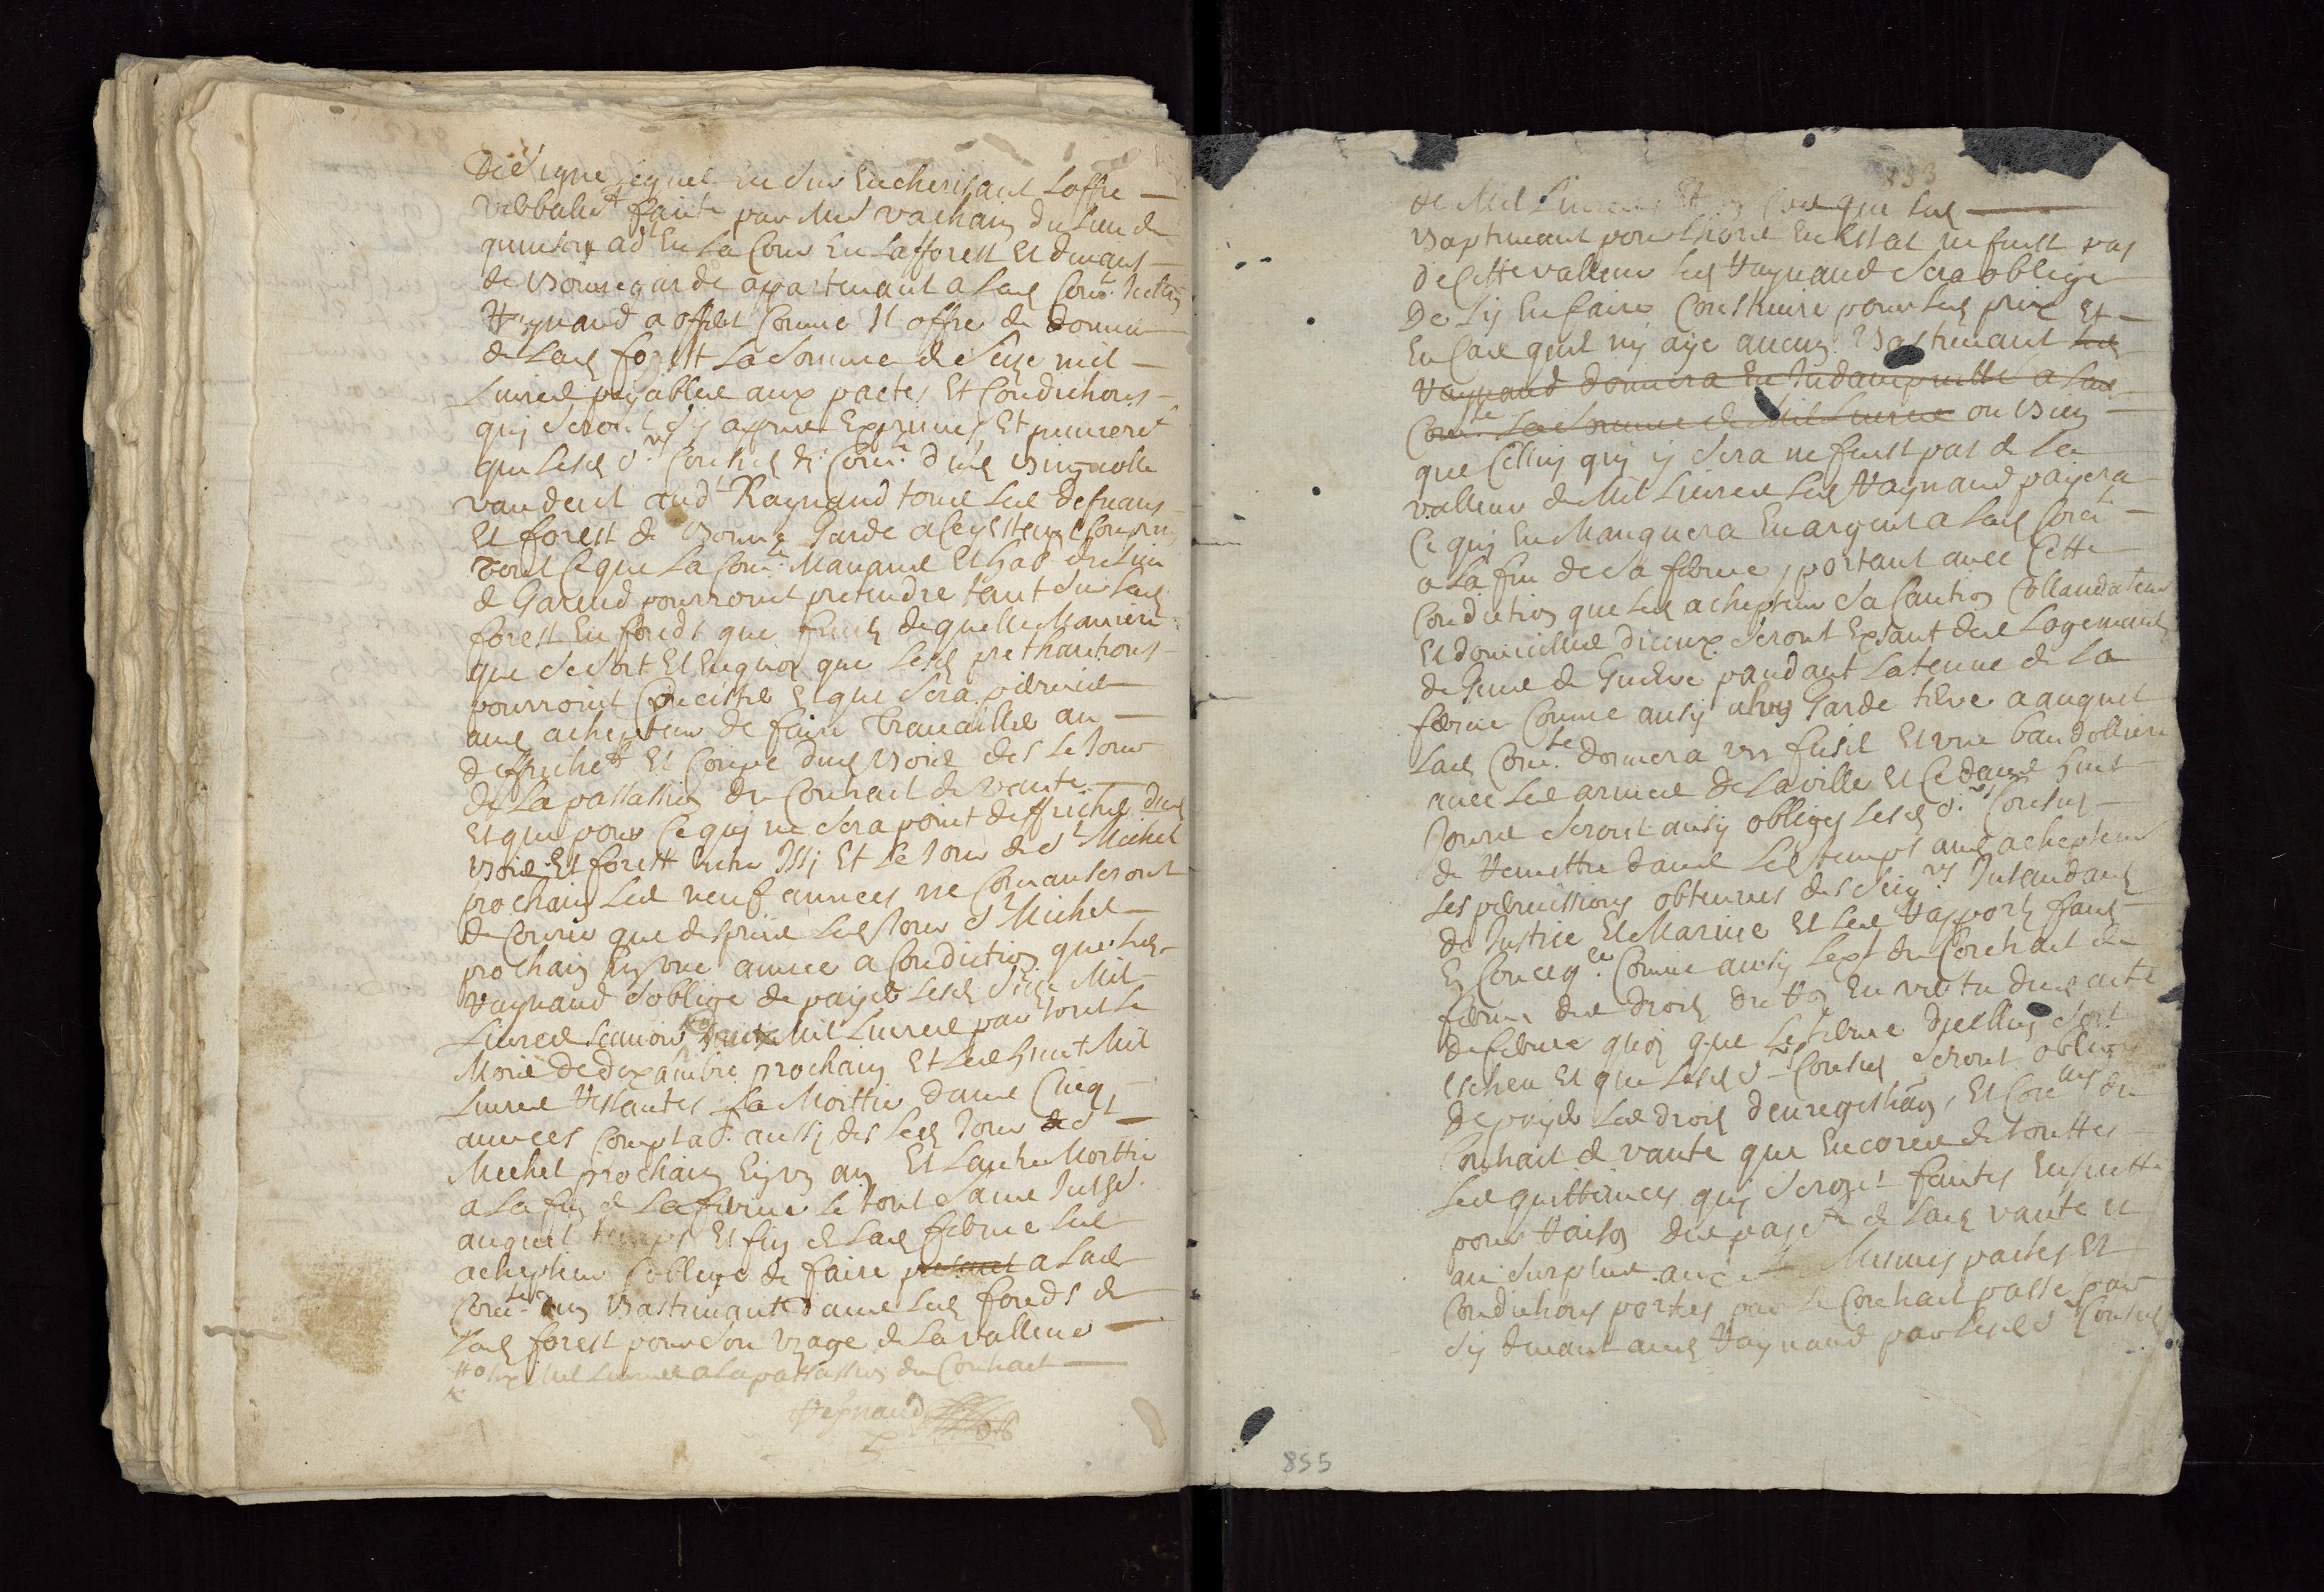 signe lequel en sur encherisant loffre
verballemt faite par Mre vachain du lieu de
en la Cour en lafforest et
de bonnegarde apartenant a lad Comte led
Raynaud a offert comme il offre de donner
de lad forest la somme de seize mil
livres payables aux pactes et condictions
quy seront sy appres exprimes et premieremt
que lesd Srs Consuls de Comte dud
vandent aud Raynaud tous les
et forest de bonne Garde
tout ce que la Comte Manans et hab du lieu
de Gareud pourroint pretendre tant sur lad
forest en fonds que fruits de quelle Maniere
que se soit et en quoy que lesd prethantions
pourroint concister et que sera permis
aud achepteur de faire travailler au
deffrichemt et coupe dud bois des le jour
de la passation du Contrait de vante
et que pour ce quy ne sera point deffriche dud
bois et forest entre issi et le jour de St Michel
prochain les neuf annees ne Comanseront
de courir que despuis led jour St Michel
prochain en une annee a condiction que led
Raynaud soblige de payer lesd seize Mil
livres scauoir deux Mil livres par tout le
Mois de dexambre prochain et les huit Mil
livres restantes la Moittie dans cinq
annees compta aussy des led jour de St
Michel prochain en un an et lautre Moittie
a la fin de la ferme le tout sans
auquel temps et fin de lad ferme led
achepteur soblige de faire a lad
Comte un Bastimant dans led fonds de
lad forest pour son uzage de la valleur
six Mil livres a la passation du Contrait
Reynaud
de Mil livres et en cas que led
Baptimant pour lhors en estat ne fust pas
de cette valleur led Raynaud sera oblige
de sy en faire construire pour led prix et
en cas quil ny aye aucun Bastimant led
Raynaud donnera en a lad
Comte la somme de Mil livres ou bien
que celluy quy y sera ne fust pas de la
valleur de Mil livres led Raynaud payera
ce quy en Manquera en argent a lad Comte
a la fin de sa ferme, portant avec cette
condiction que led achepteur sa Caution Collaudateur
et domicilles diceux seront exsant des logemants
de Gens de Guerre pandant la tenue de la
ferme comme ausy un Garde terre a auquel
lad Comte donnera un fusil et une bandolliere
avec les armes de la ville et ce dans huit
jours seront ausy obliges lesd Srs Consuls
de remettre dans led temps aud achepteur
les permissions obtenues des Seigrs Intandants
de Justice et Marine et les rapports faits
en conceqce comme ausy lext du Contrait de
ferme des droits du Roy en vertu dud acte
de ferme quoy que le terme dicelluy soit
escheu et que lesd Srs Consuls seront obliges
de payer les droits denregistran, et Con du
Contrait de vante que encores de touttes
les quittances quy seront faites
pour raison des payemt de lad vante et
au surplus avec les Mesmes pactes et
condictions portes par le Contrait passe par
sy devant aud Raynaud par lesd Srs Consuls
855